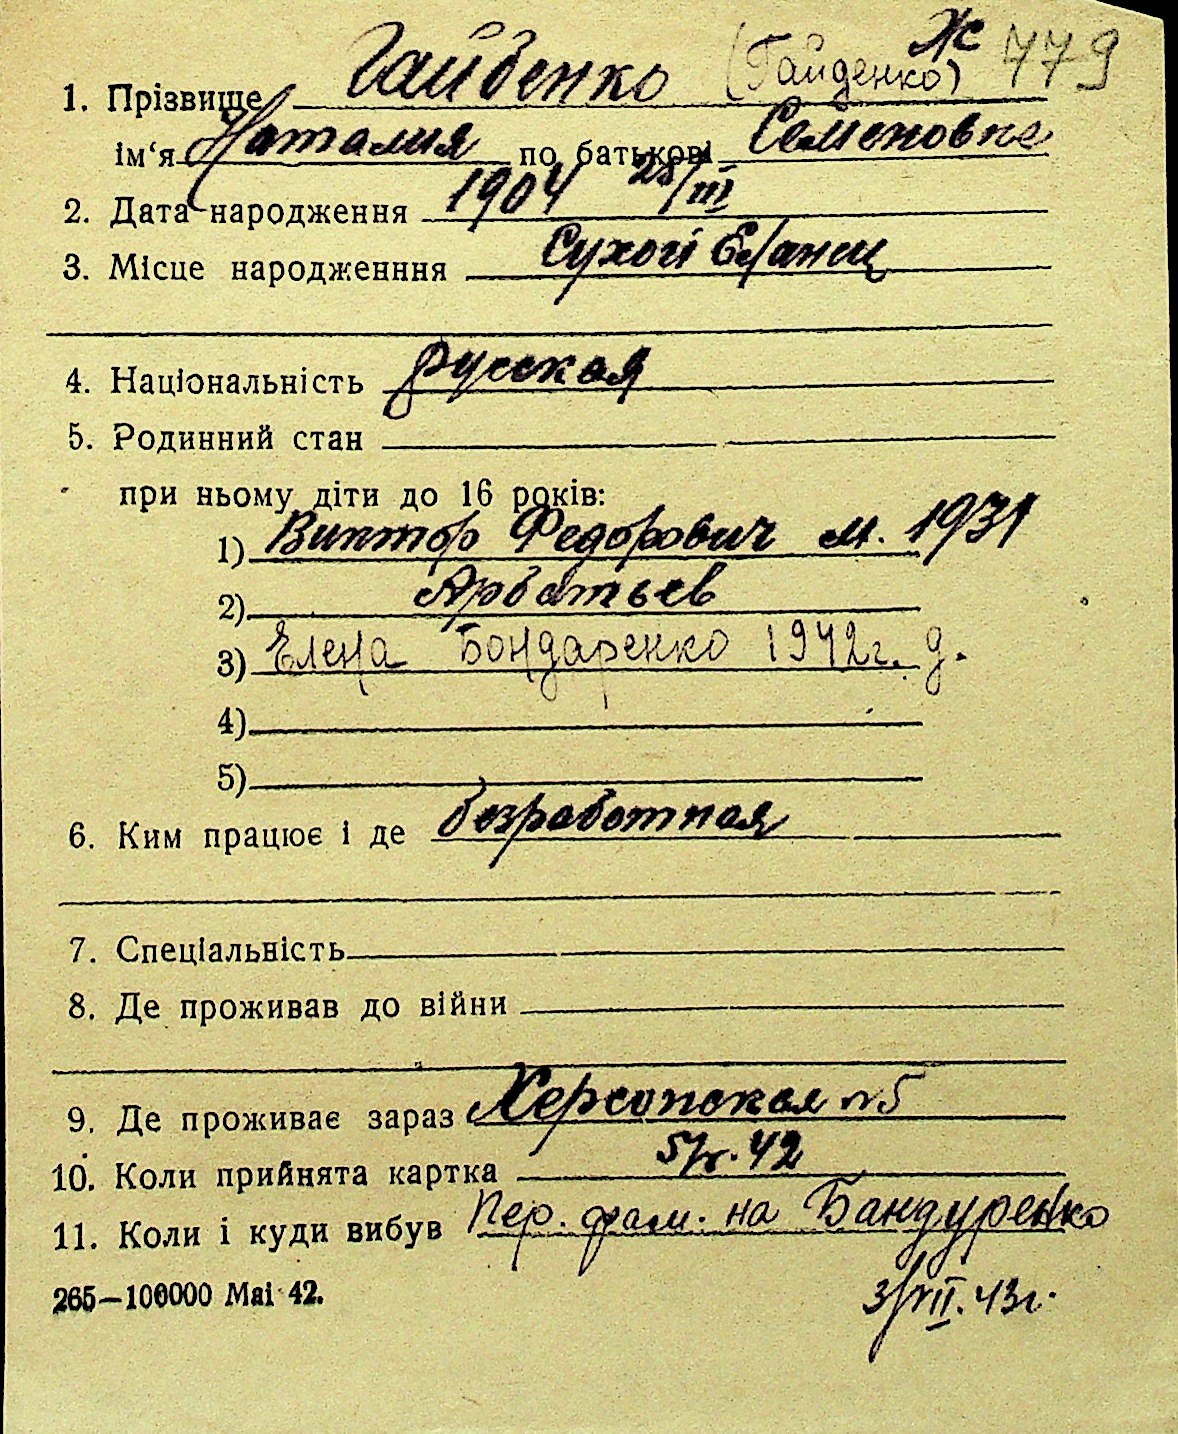 Ж 779
1. Прізвище Гайбенко (Гайденко)
ім‘я Наталия по батькові Семеновна
2. Дата народження 1904 28/III
3. Місце народженння Сухой Еланец
4. Національність русская
5. Родинний стан
при ньому діти до 16 років:
1) Виктор Федорович м. 1931
2) Арбатьев
3) Елена Бондаренко 1942г. д.
4)
5)
6. Ким працює і де безработная
7. Спеціальність
8. Де проживав до війни
9. Де проживає зараз Херсонская №5
10. Коли прийнята картка 42
11. Коли і куди вибув Пер. фам. на Бандуренко
265—100000 Mai 42. 3/VII.43г.